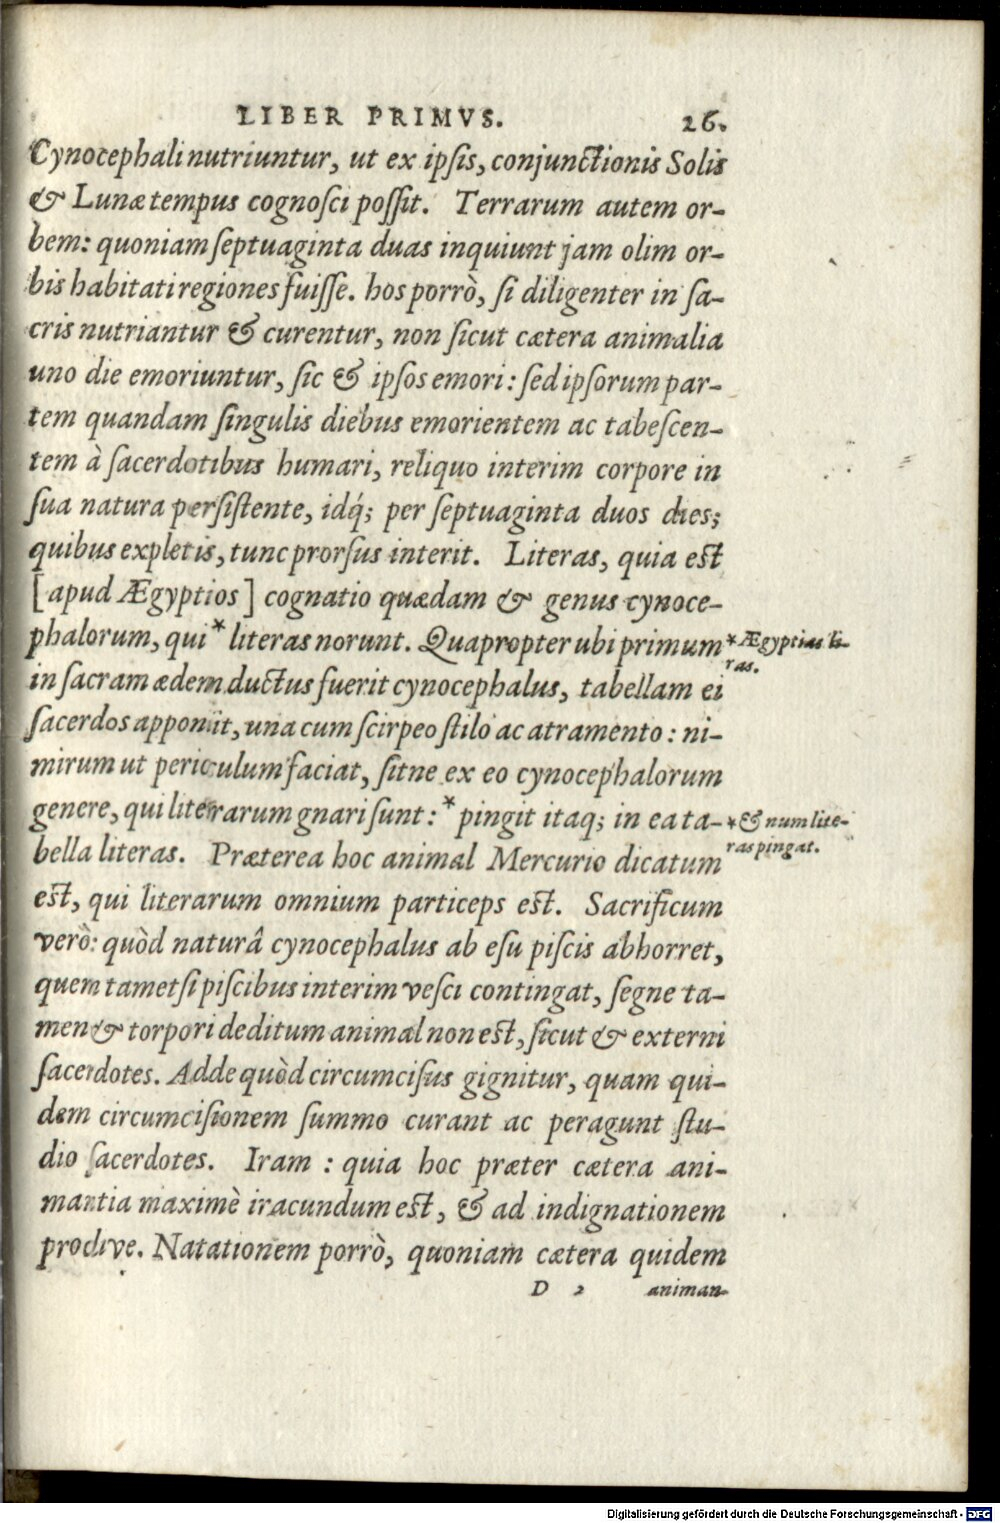 LIBER PRIMVS. 26.
Cynocephali nutriuntur, ut ex ipſis, conjunctionis Solis
& Lunæ tempus cognoſci poſſit. Terrarum autem or-
bem: quoniam ſeptuaginta duas inquiunt jam olim or-
bis habitati regiones fuiſſe. hos porrò, ſi diligenter in ſa-
cris nutriantur & curentur, non ſicut cætera animalia
uno die emoriuntur, ſic & ipſos emori: ſed ipſorum par-
tem quandam ſingulis diebus emorientem ac tabeſcen-
tem à ſacerdotibus humari, reliquo interim corpore in
ſua natura perſiſtente, idq́; per ſeptuaginta duos dies;
quibus expletis, tunc prorſus interit. Literas, quia eſt
[apud Ægyptios] cognatio quædam & genus cynoce-
phalorum, qui * literas norunt. Quapropter ubi primum
* Ægyptias li-
ras.
in ſacram ædem ductus fuerit cynocephalus, tabellam ei
ſacerdos apponit, una cum ſcirpeo ſtilo ac atramento: ni-
mirum ut periculum faciat, ſitne ex eo cynocephalorum
genere, qui literarum gnari ſunt: * pingit itaq; in ea ta-
* & num lite-
ras pingat.
bella literas. Præterea hoc animal Mercurio dicatum
eſt, qui literarum omnium particeps eſt. Sacrificum
verò: quòd naturâ cynocephalus ab eſu piſcis abhorret,
quem tametſi piſcibus interim veſci contingat, ſegne ta-
men & torpori deditum animal non eſt, ſicut & externi
ſacerdotes. Adde quòd circumciſus gignitur, quam qui-
dem circumciſionem ſummo curant ac peragunt ſtu-
dio ſacerdotes. Iram: quia hoc præter cætera ani-
mantia maximè iracundum eſt, & ad indignationem
proclive. Natationem porrò, quoniam cætera quidem
D 2 animan-
Digitalisierung gefördert durch die Deutsche Forschungsgemeinschaft - DFG